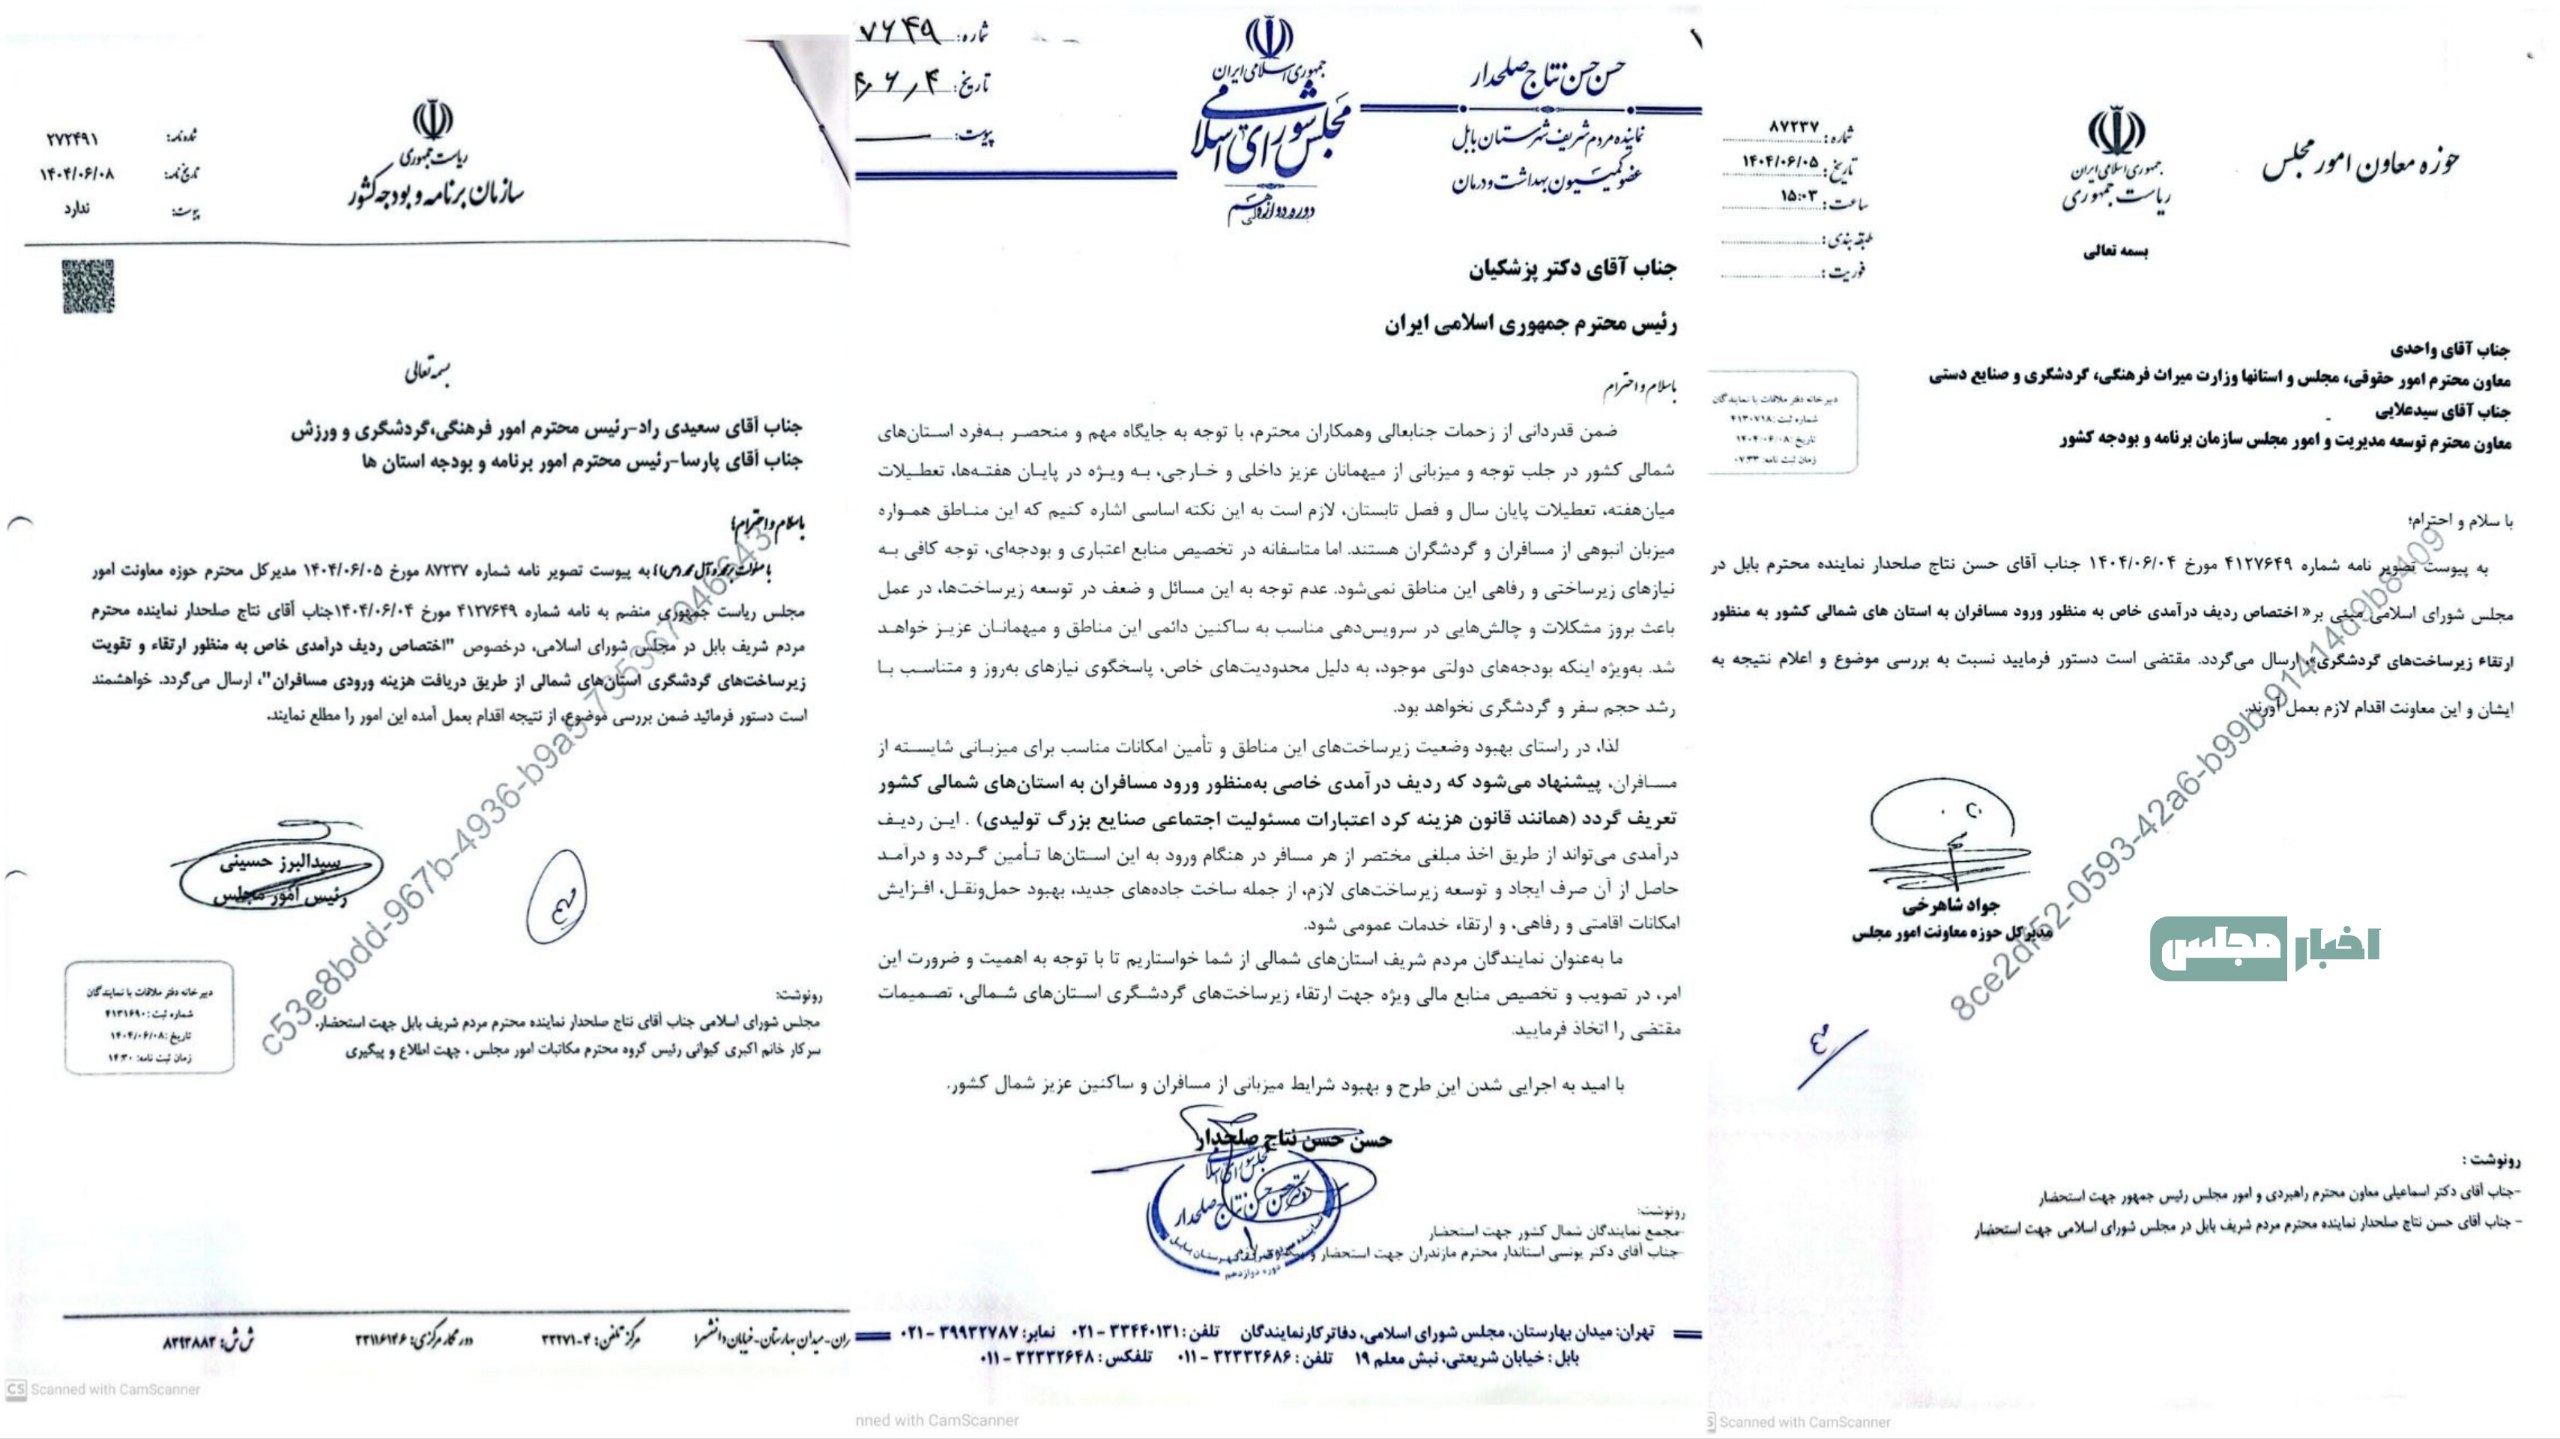 ریاست جمهوری
سازمان برنامه و بودجه کشور
شماره نامه: ۲۷۲۴۹۱
تاریخ نامه: ۱۴۰۴/۰۶/۰۸
پیوست: ندارد
بسمه تعالی
جناب آقای سعیدی راد-رئیس محترم امور فرهنگی،گردشگری و ورزش
جناب آقای پارسا-رئیس محترم امور برنامه و بودجه استان ها
باسلام و احترام؛
با صلوات بر محمد و آل محمد (ص)؛ به پیوست تصویر نامه شماره ۸۷۲۳۷ مورخ ۱۴۰۴/۰۶/۰۵ مدیرکل محترم حوزه معاونت امور
مجلس ریاست جمهوری منضم به نامه شماره ۴۱۲۷۶۴۹ مورخ ۱۴۰۴/۰۶/۰۴جناب آقای نتاج صلحدار نماینده محترم
مردم شریف بابل در مجلس شورای اسلامی، درخصوص "اختصاص ردیف درآمدی خاص به منظور ارتقاء و تقویت
زیرساخت‌های گردشگری استان‌های شمالی از طریق دریافت هزینه ورودی مسافران"، ارسال می‌گردد. خواهشمند
است دستور فرمائید ضمن بررسی موضوع، از نتیجه اقدام بعمل آمده این امور را مطلع نمایند.
سیدالبرز حسینی
رئیس امور مجلس
دبیرخانه دفتر ملاقات با نمایندگان
شماره ثبت: ۴۱۳۱۶۹۰
تاریخ: ۱۴۰۴/۰۶/۰۸
زمان ثبت نامه: ۱۴:۳۰
رونوشت:
مجلس شورای اسلامی جناب آقای نتاج صلحدار نماینده محترم مردم شریف بابل جهت استحضار.
سرکار خانم اکبری کیوانی رئیس گروه محترم مکاتبات امور مجلس ، جهت اطلاع و پیگیری
ران-میدان بهارستان-خیابان دانشسرا مرکز تلفن: ۴-۳۳۲۷۱ دورنگار مرکزی: ۳۳۱۱۶۱۴۶ ش ش: ۸۳۹۳۸۸۳
CS Scanned with CamScanner
شماره: ۷۶۴۹
تاریخ: ۴٫۶٫۴
پیوست:
جمهوری اسلامی ایران
مجلس شورای اسلامی
دوره دوازدهم
حسن حسن نتاج صلحدار
نماینده مردم شریف شهرستان بابل
عضو کمیسیون بهداشت و درمان
جناب آقای دکتر پزشکیان
رئیس محترم جمهوری اسلامی ایران
باسلام و احترام
ضمن قدردانی از زحمات جنابعالی وهمکاران محترم، با توجه به جایگاه مهم و منحصر به‌فرد استان‌های
شمالی کشور در جلب توجه و میزبانی از میهمانان عزیز داخلی و خارجی، به ویژه در پایان هفته‌ها، تعطیلات
میان‌هفته، تعطیلات پایان سال و فصل تابستان، لازم است به این نکته اساسی اشاره کنیم که این مناطق همواره
میزبان انبوهی از مسافران و گردشگران هستند. اما متاسفانه در تخصیص منابع اعتباری و بودجه‌ای، توجه کافی به
نیازهای زیرساختی و رفاهی این مناطق نمی‌شود. عدم توجه به این مسائل و ضعف در توسعه زیرساخت‌ها، در عمل
باعث بروز مشکلات و چالش‌هایی در سرویس‌دهی مناسب به ساکنین دائمی این مناطق و میهمانان عزیز خواهد
شد. به‌ویژه اینکه بودجه‌های دولتی موجود، به دلیل محدودیت‌های خاص، پاسخگوی نیازهای به‌روز و متناسب با
رشد حجم سفر و گردشگری نخواهد بود.
لذا، در راستای بهبود وضعیت زیرساخت‌های این مناطق و تأمین امکانات مناسب برای میزبانی شایسته از
مسافران، پیشنهاد می‌شود که ردیف درآمدی خاصی به‌منظور ورود مسافران به استان‌های شمالی کشور
تعریف گردد (همانند قانون هزینه کرد اعتبارات مسئولیت اجتماعی صنایع بزرگ تولیدی) . این ردیف
درآمدی می‌تواند از طریق اخذ مبلغی مختصر از هر مسافر در هنگام ورود به این استان‌ها تأمین گردد و درآمد
حاصل از آن صرف ایجاد و توسعه زیرساخت‌های لازم، از جمله ساخت جاده‌های جدید، بهبود حمل‌ونقل، افزایش
امکانات اقامتی و رفاهی، و ارتقاء خدمات عمومی شود.
ما به‌عنوان نمایندگان مردم شریف استان‌های شمالی از شما خواستاریم تا با توجه به اهمیت و ضرورت این
امر، در تصویب و تخصیص منابع مالی ویژه جهت ارتقاء زیرساخت‌های گردشگری استان‌های شمالی، تصمیمات
مقتضی را اتخاذ فرمایید.
با امید به اجرایی شدن این طرح و بهبود شرایط میزبانی از مسافران و ساکنین عزیز شمال کشور.
حسن حسن نتاج صلحدار
رونوشت:
-مجمع نمایندگان شمال کشور جهت استحضار
-جناب آقای دکتر یونسی استاندار محترم مازندران جهت استحضار و
تهران: میدان بهارستان، مجلس شورای اسلامی، دفاتر کار نمایندگان تلفن: ۳۳۴۴۰۱۳۱ - ۰۲۱ نمابر: ۳۹۹۳۲۷۸۷ - ۰۲۱
بابل: خیابان شریعتی، نبش معلم ۱۹ تلفن: ۳۲۳۳۲۶۸۶ - ۰۱۱ تلفکس: ۳۲۳۳۲۶۴۸ - ۰۱۱
nned with CamScanner
حوزه معاون امور مجلس
جمهوری اسلامی ایران
ریاست جمهوری
بسمه تعالی
شماره: ۸۷۲۳۷
تاریخ: ۱۴۰۴/۰۶/۰۵
ساعت: ۱۵:۰۳
طبقه بندی:
فوریت:
جناب آقای واحدی
معاون محترم امور حقوقی، مجلس و استانها وزارت میراث فرهنگی، گردشگری و صنایع دستی
جناب آقای سیدعلایی
معاون محترم توسعه مدیریت و امور مجلس سازمان برنامه و بودجه کشور
دبیرخانه دفتر ملاقات با نمایندگان
شماره ثبت: ۴۱۳۰۷۱۸
تاریخ: ۱۴۰۴/۰۶/۰۸
زمان ثبت نامه: ۰۷:۳۳
با سلام و احترام؛
به پیوست تصویر نامه شماره ۴۱۲۷۶۴۹ مورخ ۱۴۰۴/۰۶/۰۴ جناب آقای حسن نتاج صلحدار نماینده محترم بابل در
مجلس شورای اسلامی مبنی بر« اختصاص ردیف درآمدی خاص به منظور ورود مسافران به استان های شمالی کشور به منظور
ارتقاء زیرساخت‌های گردشگری» ارسال می‌گردد. مقتضی است دستور فرمایید نسبت به بررسی موضوع و اعلام نتیجه به
ایشان و این معاونت اقدام لازم بعمل آورند.
جواد شاهرخی
مدیرکل حوزه معاونت امور مجلس
اخبار مجلس
رونوشت :
-جناب آقای دکتر اسماعیلی معاون محترم راهبردی و امور مجلس رئیس جمهور جهت استحضار
- جناب آقای حسن نتاج صلحدار نماینده محترم مردم شریف بابل در مجلس شورای اسلامی جهت استحضار
S Scanned with CamScanner